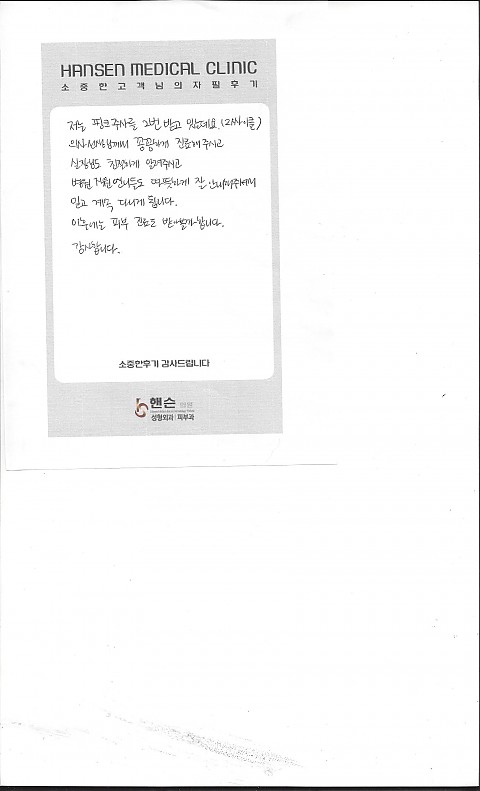 HANSEN MEDICAL CLINIC
소중한고객님의자필후기
저는 핑크주사를 2번 받고 있는데요. (2싸이클)
의사선생님께서 꼼꼼하게 진료해주시고
실장님도 친절하게 알려주시고
병원 직원언니들도 따뜻하게 잘 안내해주셔서
믿고 계속 다니게 됩니다.
이후에는 피부 진료도 받아볼까합니다.
감사합니다.
소중한후기 감사드립니다
핸슨 병원
성형외과 피부과